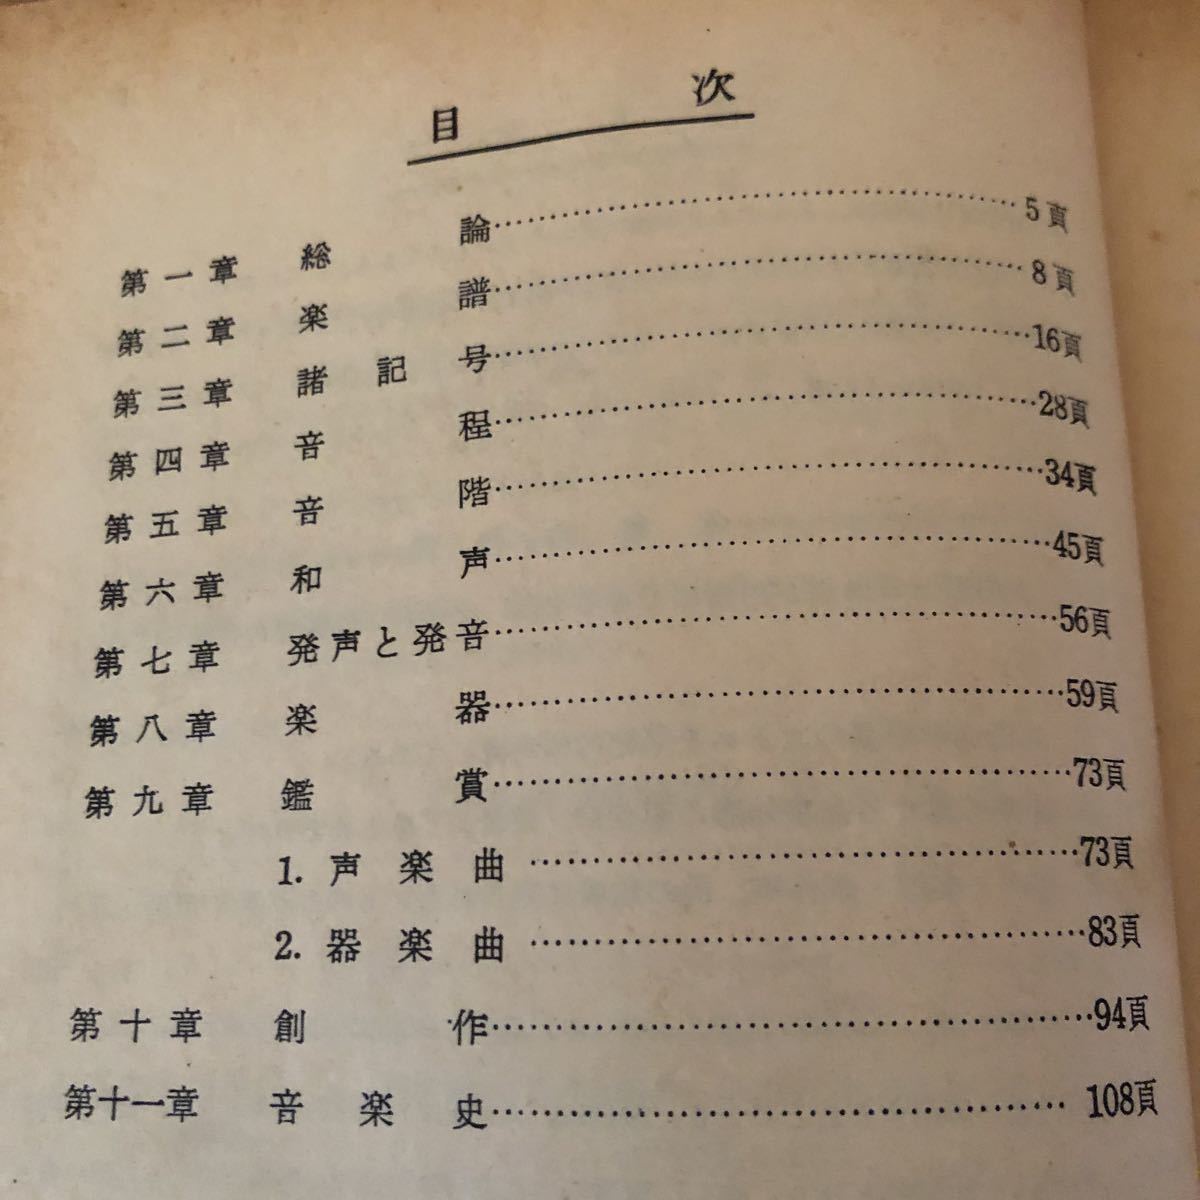 目次
第一章 総論……5頁
第二章 楽譜……8頁
第三章 諸記号……16頁
第四章 音程……28頁
第五章 音階……34頁
第六章 和声……45頁
第七章 発声と発音……56頁
第八章 楽器……59頁
第九章 鑑賞……73頁
1. 声楽曲……73頁
2. 器楽曲……83頁
第十章 創作……94頁
第十一章 音楽史……108頁